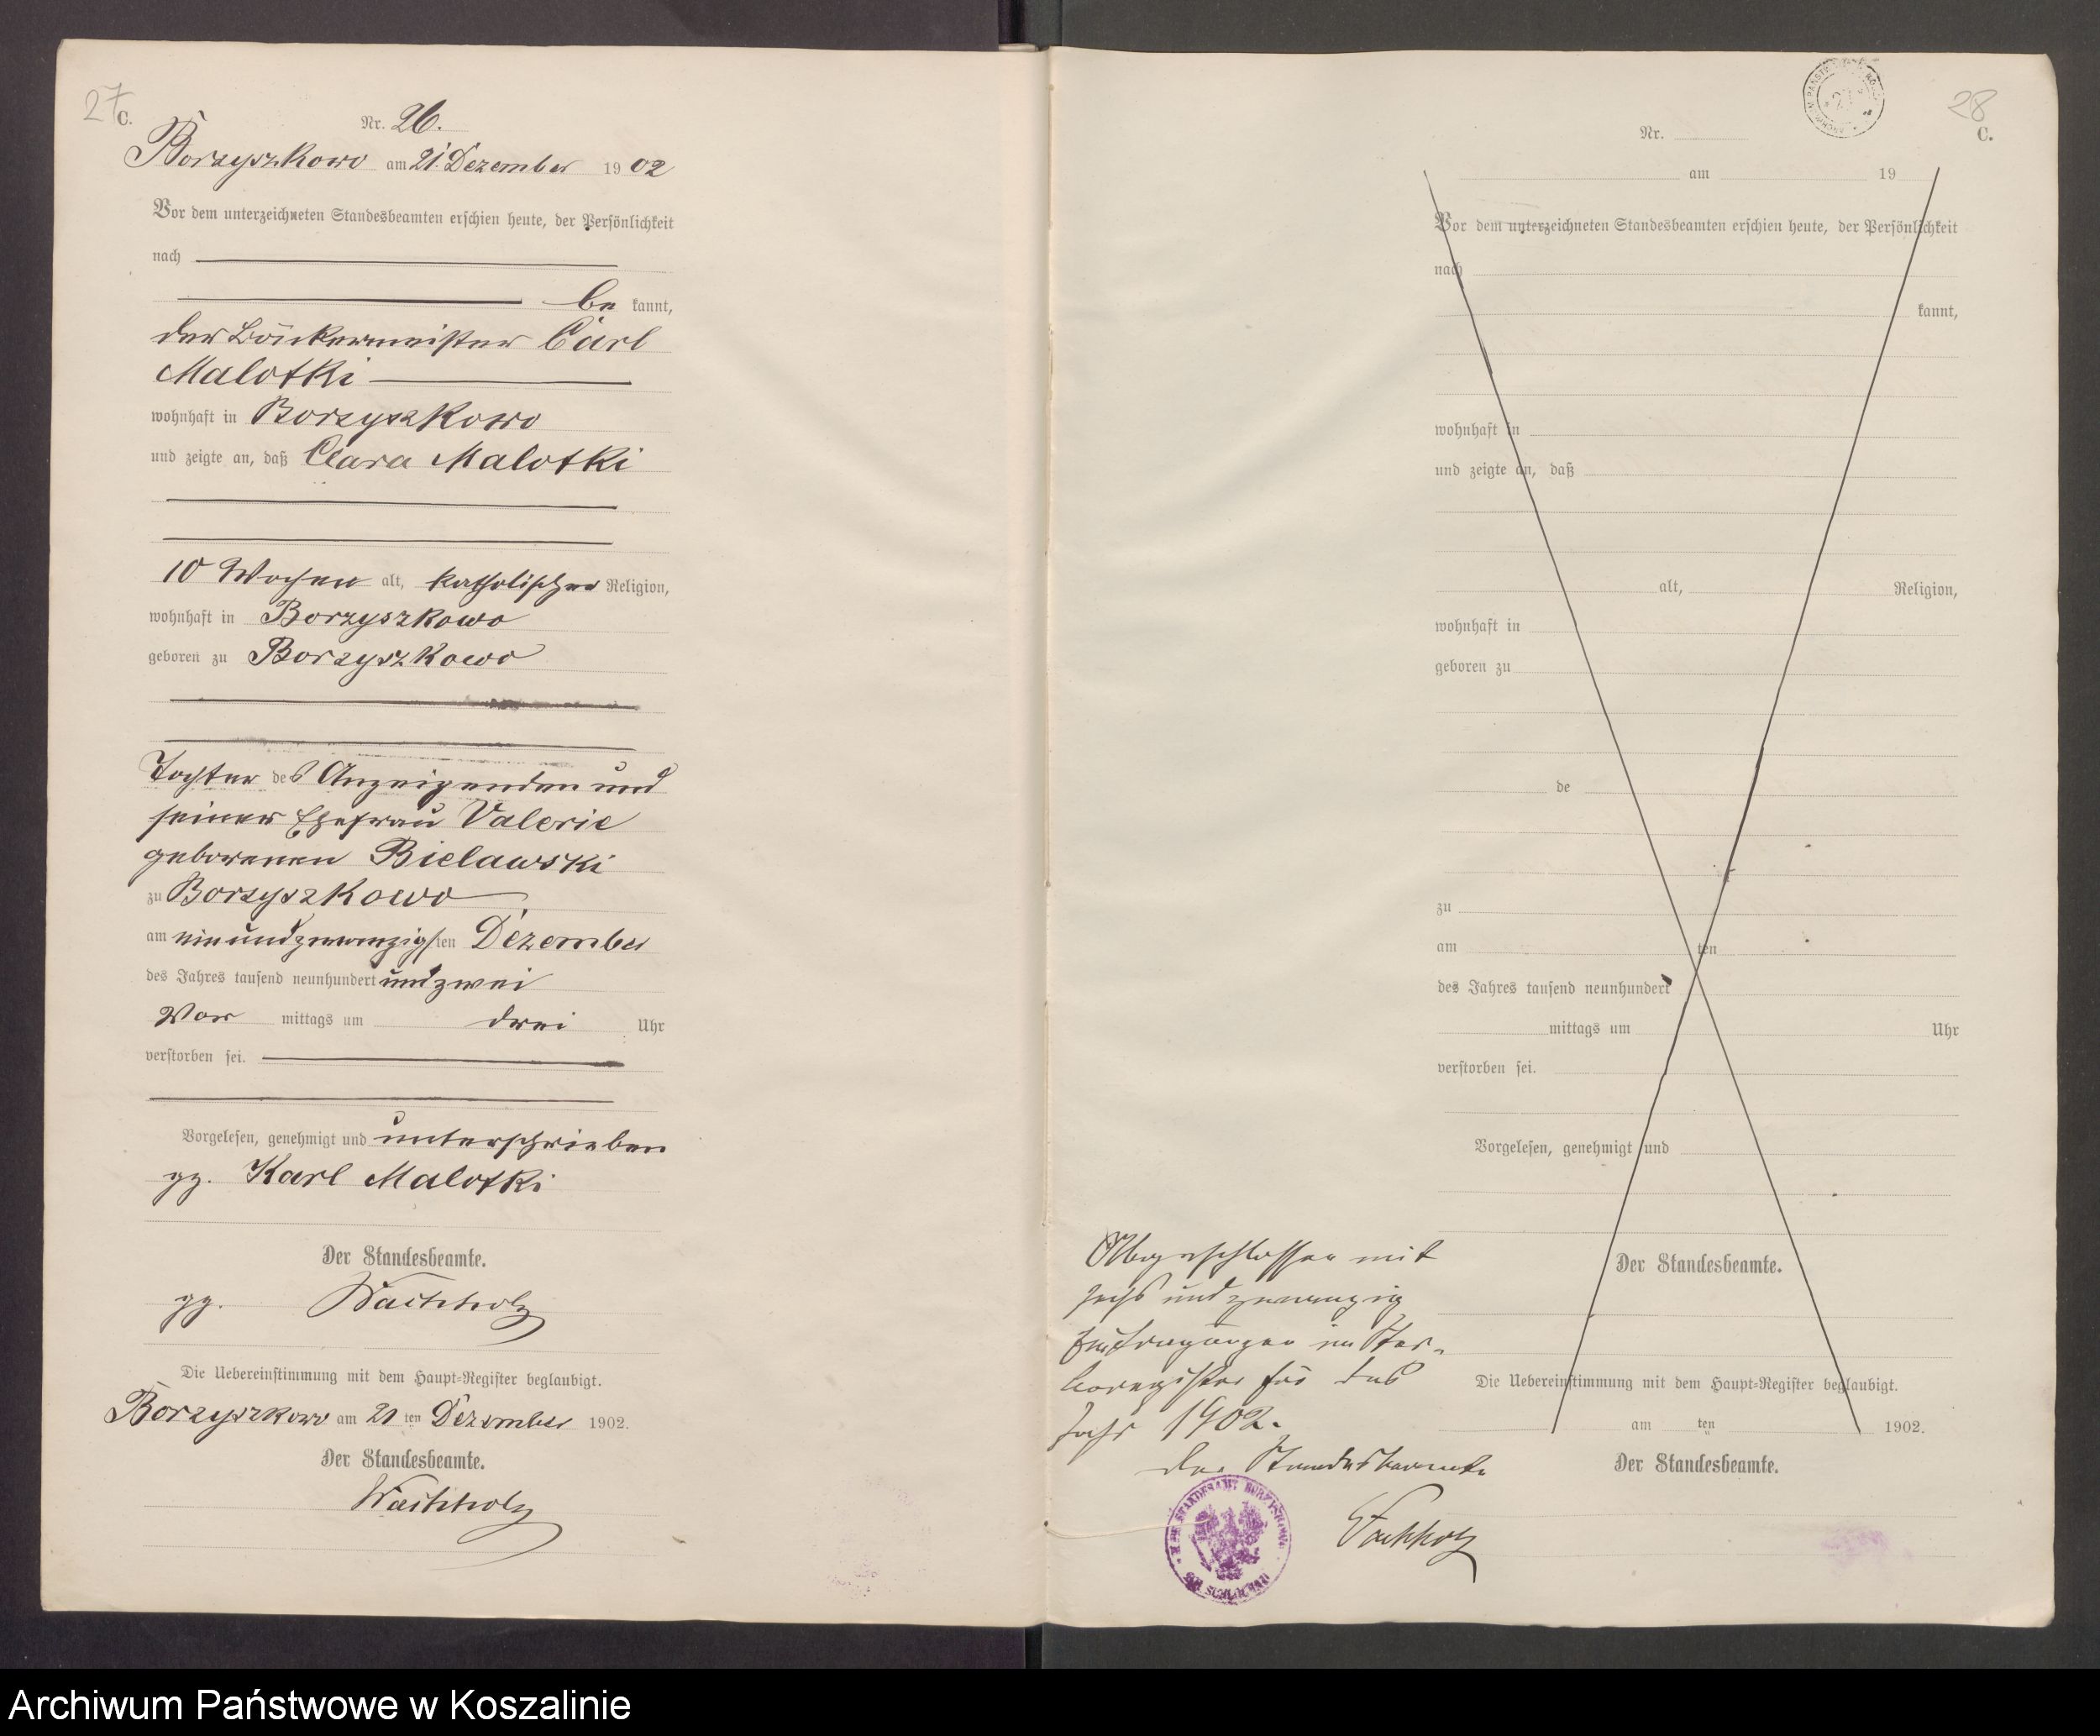 27
C.
Nr. 26.
Borzyszkowo am 21. Dezember 1902
Vor dem unterzeichneten Standesbeamten erschien heute, der Persönlichkeit
nach
be kannt,
der Bäckermeister Carl
Malotki
wohnhaft in Borzyszkowo
und zeigte an, daß Clara Malotki
10 Wochen alt, katholischer Religion,
wohnhaft in Borzyszkowo
geboren zu Borzyszkowo
Tochter des Anzeigenden und
seiner Ehefrau Valerie
geborenen Bielawski
zu Borzyszkowo
am einundzwanzigsten Dezember
des Jahres tausend neunhundert und zwei
Vor mittags um drei Uhr
verstorben sei.
Vorgelesen, genehmigt und unterschrieben
gz. Karl Malotki
Der Standesbeamte.
gz. Wachholz
Die Uebereinstimmung mit dem Haupt-Register beglaubigt.
Borzyszkowo am 21 ten Dezember 1902.
Der Standesbeamte.
Wachholz
28
C.
Nr.
am 19
Vor dem unterzeichneten Standesbeamten erschien heute, der Persönlichkeit
nach
kannt,
wohnhaft in
und zeigte an, daß
alt, Religion,
wohnhaft in
geboren zu
de
zu
am ten
des Jahres tausend neunhundert
mittags um Uhr
verstorben sei.
Vorgelesen, genehmigt und
Der Standesbeamte.
Die Uebereinstimmung mit dem Haupt-Register beglaubigt.
am ten 1902.
Der Standesbeamte.
Abgeschlossen mit
sechs und zwanzig
Eintragungen im Ster-
beregister für das
Jahr 1902.
Der Standesbeamte
Wachholz
Archiwum Państwowe w Koszalinie